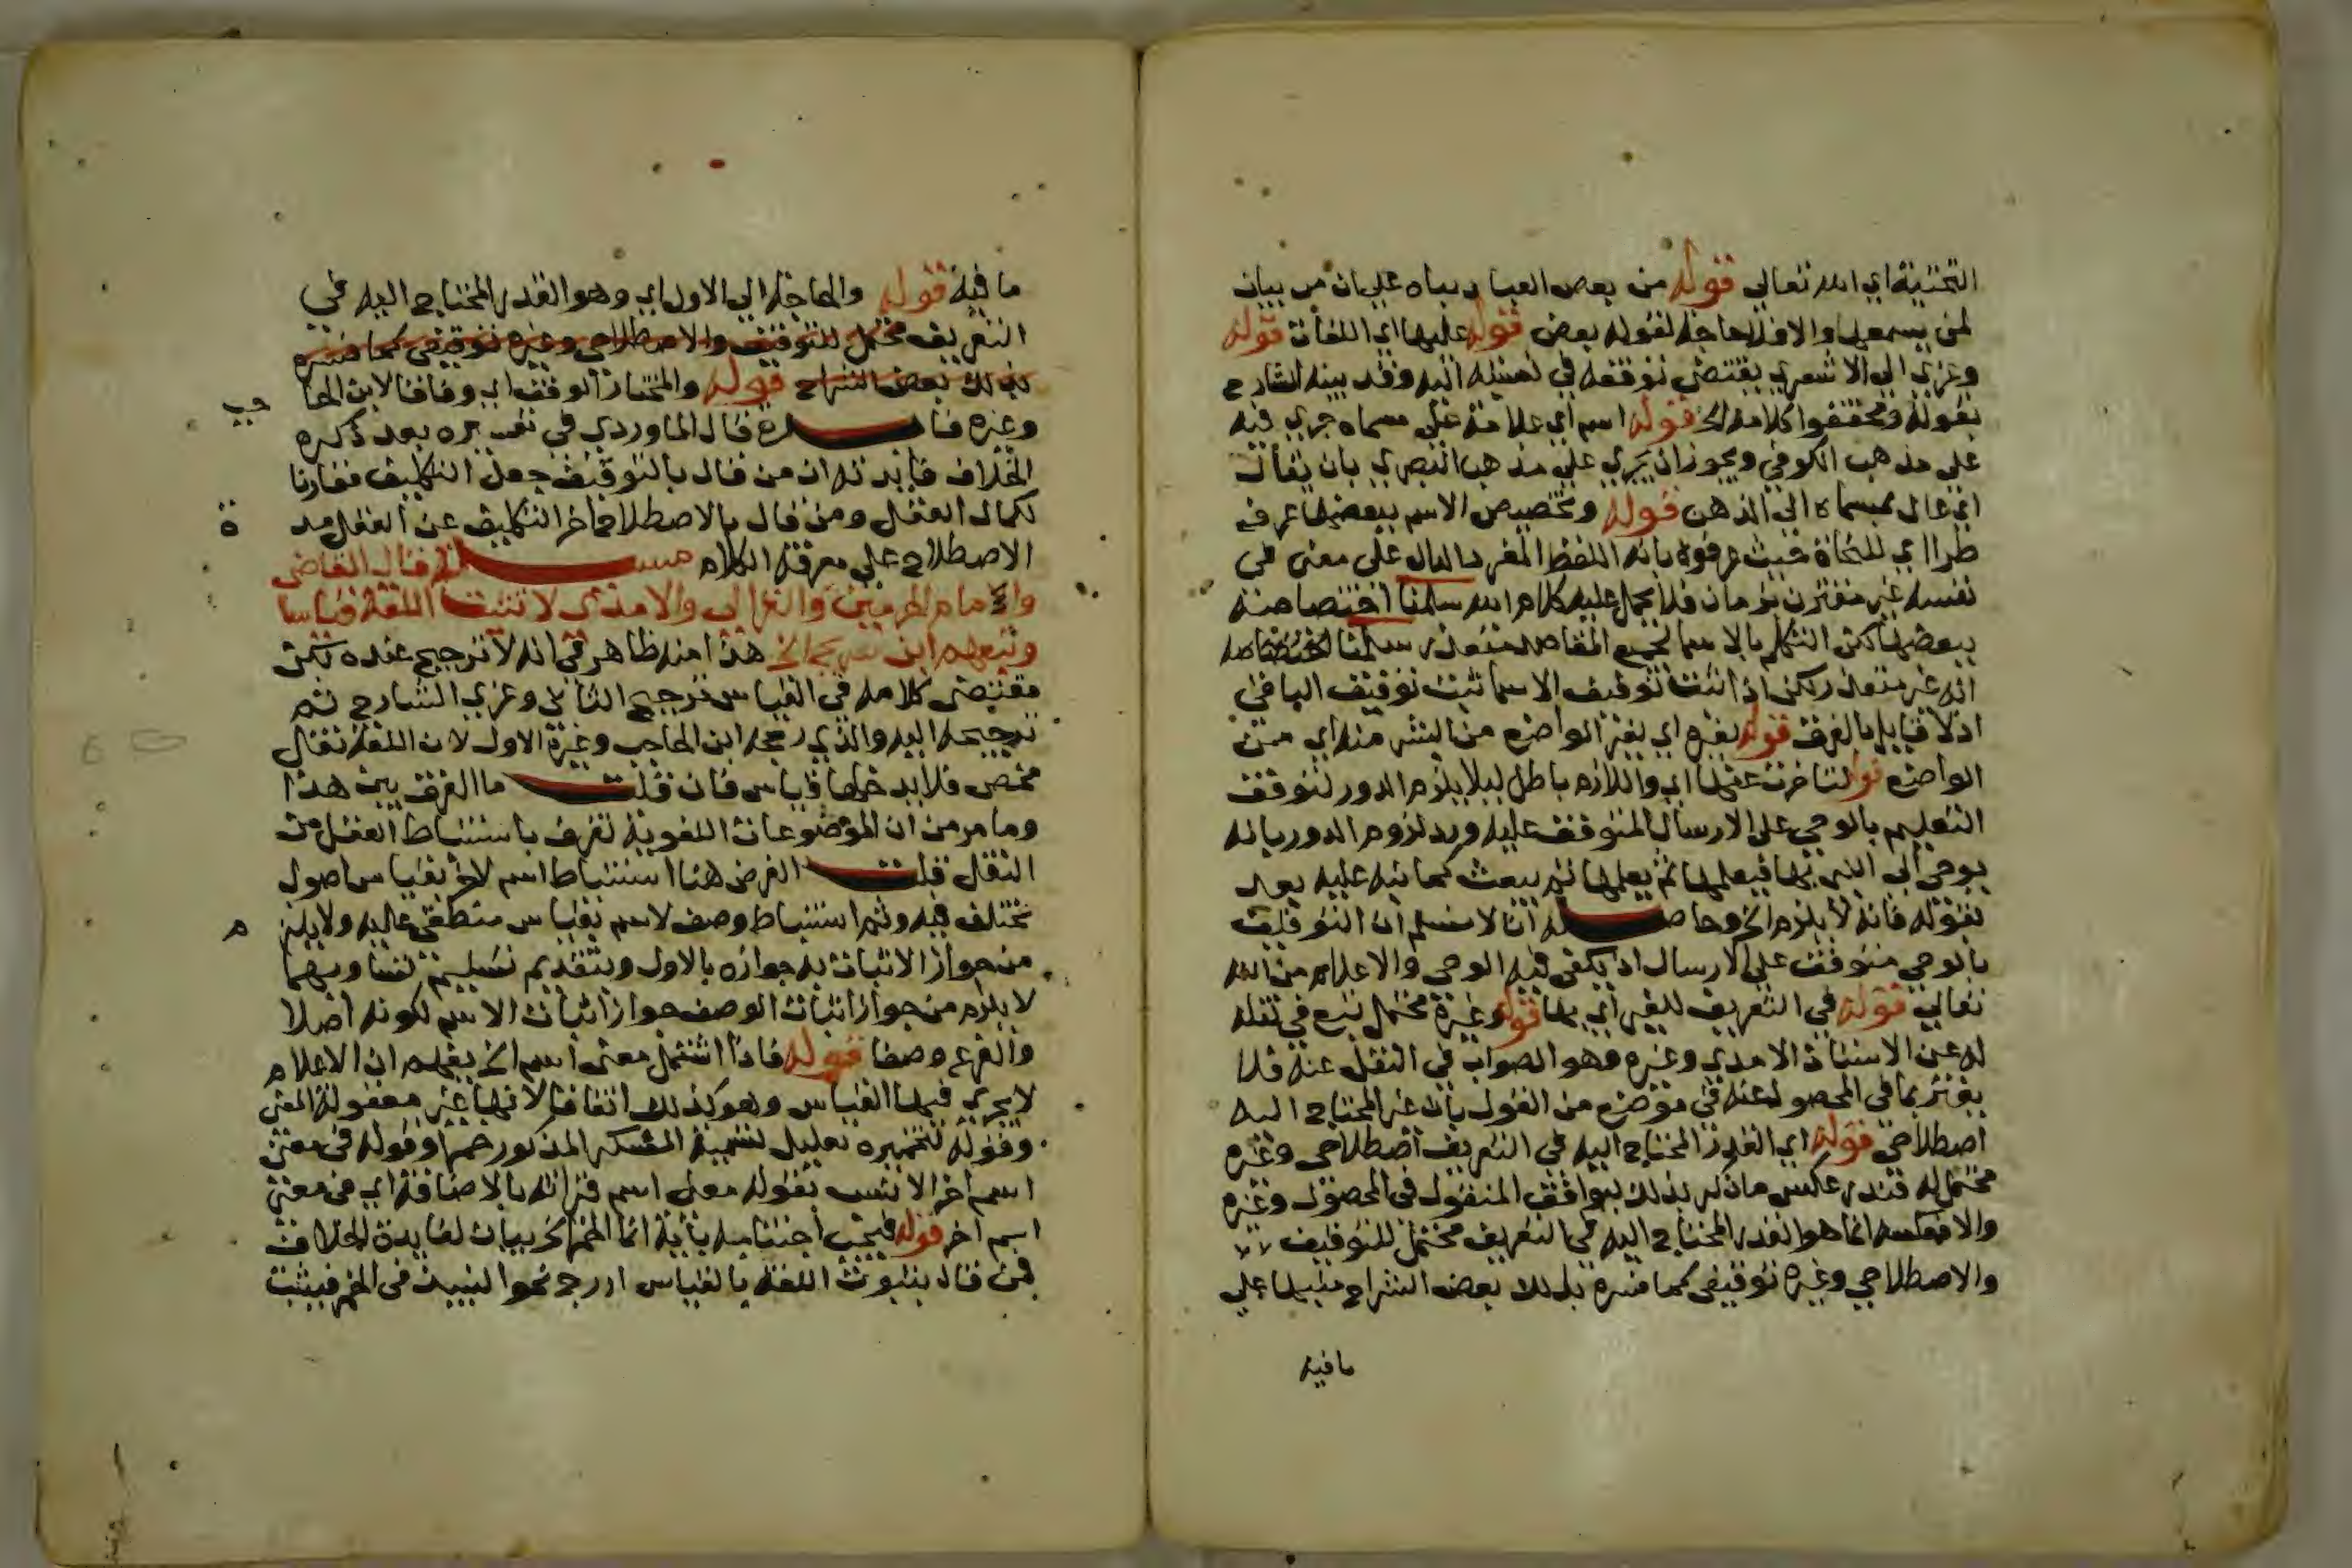 التحتية اي الله تعالى قوله من بعض العباد بناه على ان من بيان
لمن يسمعها والا فلا حاجة لقوله بعض قوله عليها اي اللغات قوله
وعزي الى الاشعري يقتضى توقفه في نسبته اليه وقد بينه الشارح
بقوله ومحققوا كلامه الخ قوله اسم اي علامة على مسماه جري فيه
على مذهب الكوفي ويجوز ان يجري على مذهب البصري بان يقال
اي عال بمسماه الى الذهن قوله وتخصيص الاسم ببعضها عرف
طرا اي للنحاة حيث عرفوه بانه اللفظ المفرد الدال على معنى في
نفسه غير مقترن بزمان فلا يحمل عليه كلام الله سلمنا اختصاصه
ببعضها لكن التكلم بالاسما لجميع المقاصد متعذر سلمنا
انه غير متعذر لكن اذا ثبت توقيف الاسما ثبت توقيف الباقي
اذ لا قايل بالفرق قوله بغيره اي بغير الواضع من البشر منه اي من
الواضع قوله لتاخرت عنها اي واللازم باطل ليلا يلزم الدور لتوقف
التعليم بالوحي على الارسال المتوقف عليه ورد لزوم الدور بانه
يوحى الى النبي بها فيعلمها ثم يعلمها ثم يبعث كما نبه عليه بعد
بقوله فانه لا يلزم الخ وحاصله انا لا نسلم ان التوقيف
بالوحي متوقف على الارسال اذ يكفى فيه الوحي والاعلام من الله
تعالى قوله في التعريف للغير اي بها قوله وغيره محتمل تبع في نقله
له عن الاستاذ الامدي وغيره وهو الصواب في النقل عنه فلا
يغتر بما في المحصول عنه في موضع من القول بان غير المحتاج اليه
اصطلاحى قوله اي القدر المحتاج اليه في التعريف اصطلاحى وغيره
محتمل له قدر عكس ما ذكر بذلك ليوافق المنقول في المحصول وغيره
والا فعكسه انما هو القدر المحتاج اليه في التعريف محتمل للتوقيف
والاصطلاحي وغيره توقيفى كما فسره بذلك بعض الشراح منبها على
ما فيه
ما فيه قوله والحاجة الى الاول اي وهو القدر المحتاج اليه في
التعريف محتمل للتوقيف والاصطلاحي وغيره توقيفى كما فسره
بذلك بعض الشراح قوله والمختار الوقف اي وفاقا لابن الحا
جب
وغيره فايدة قال الماوردي في تفسيره بعد ذكره
الخلاف فايدته ان من قال بالتوقيف جعل التكليف مقارنا
لكمال العقل ومن قال بالاصطلاح اخر التكليف عن العقل مد
ة
الاصطلاح على معرفة الكلام مسئلة قال القاضى
والامام الحرمين والغزالى والامدي لا تثبت اللغة قياسا
وتبعهم ابن سريج الخ هذا منه ظاهر في انه لا ترجيح عنده لكن
مقتضى كلامه في القياس ترجيح الثاني وعزي الشارح ثم
ترجيحه اليه والذي رجحه ابن الحاجب وغيره الاول لان اللغة نقل
محض فلا يدخلها قياس فان قلت ما الفرق بين هذا
وما مر من ان الموضوعات اللغوية تعرف باستنباط العقل من
النقل قلت الغرض هنا استنباط اسم لاخر بقياس اصول
تختلف فيه وثم استنباط وصف لاسم بقياس منطقى عاليه ولا يلز
م
من جواز الاثبات به جوازه بالاول وبتقديم تسليم تساويهما
لا يلزم من جواز اثبات الوصف جواز اثبات الاسم لكونه اصلا
والفرع وصفا قوله فاذا اشتمل معنى اسم الخ يفهم ان الاعلام
لا يجري فيها القياس وهو كذلك اتفاقا لانها غير معقولة المعنى
وقوله لتخميره تعليل لتسمية المسكر المذكور خمرا وقوله في معنى
اسم اخر الانسب بقوله معنى اسم قراته بالاضافة اي في معنى
اسم اخر قوله فيجب اجتنابه باية انما الخمر الخ بيان لفايدة الخلاف
فمن قال بثبوت اللغة بالقياس ادرج نحو النبيذ في الخمر فيثبت